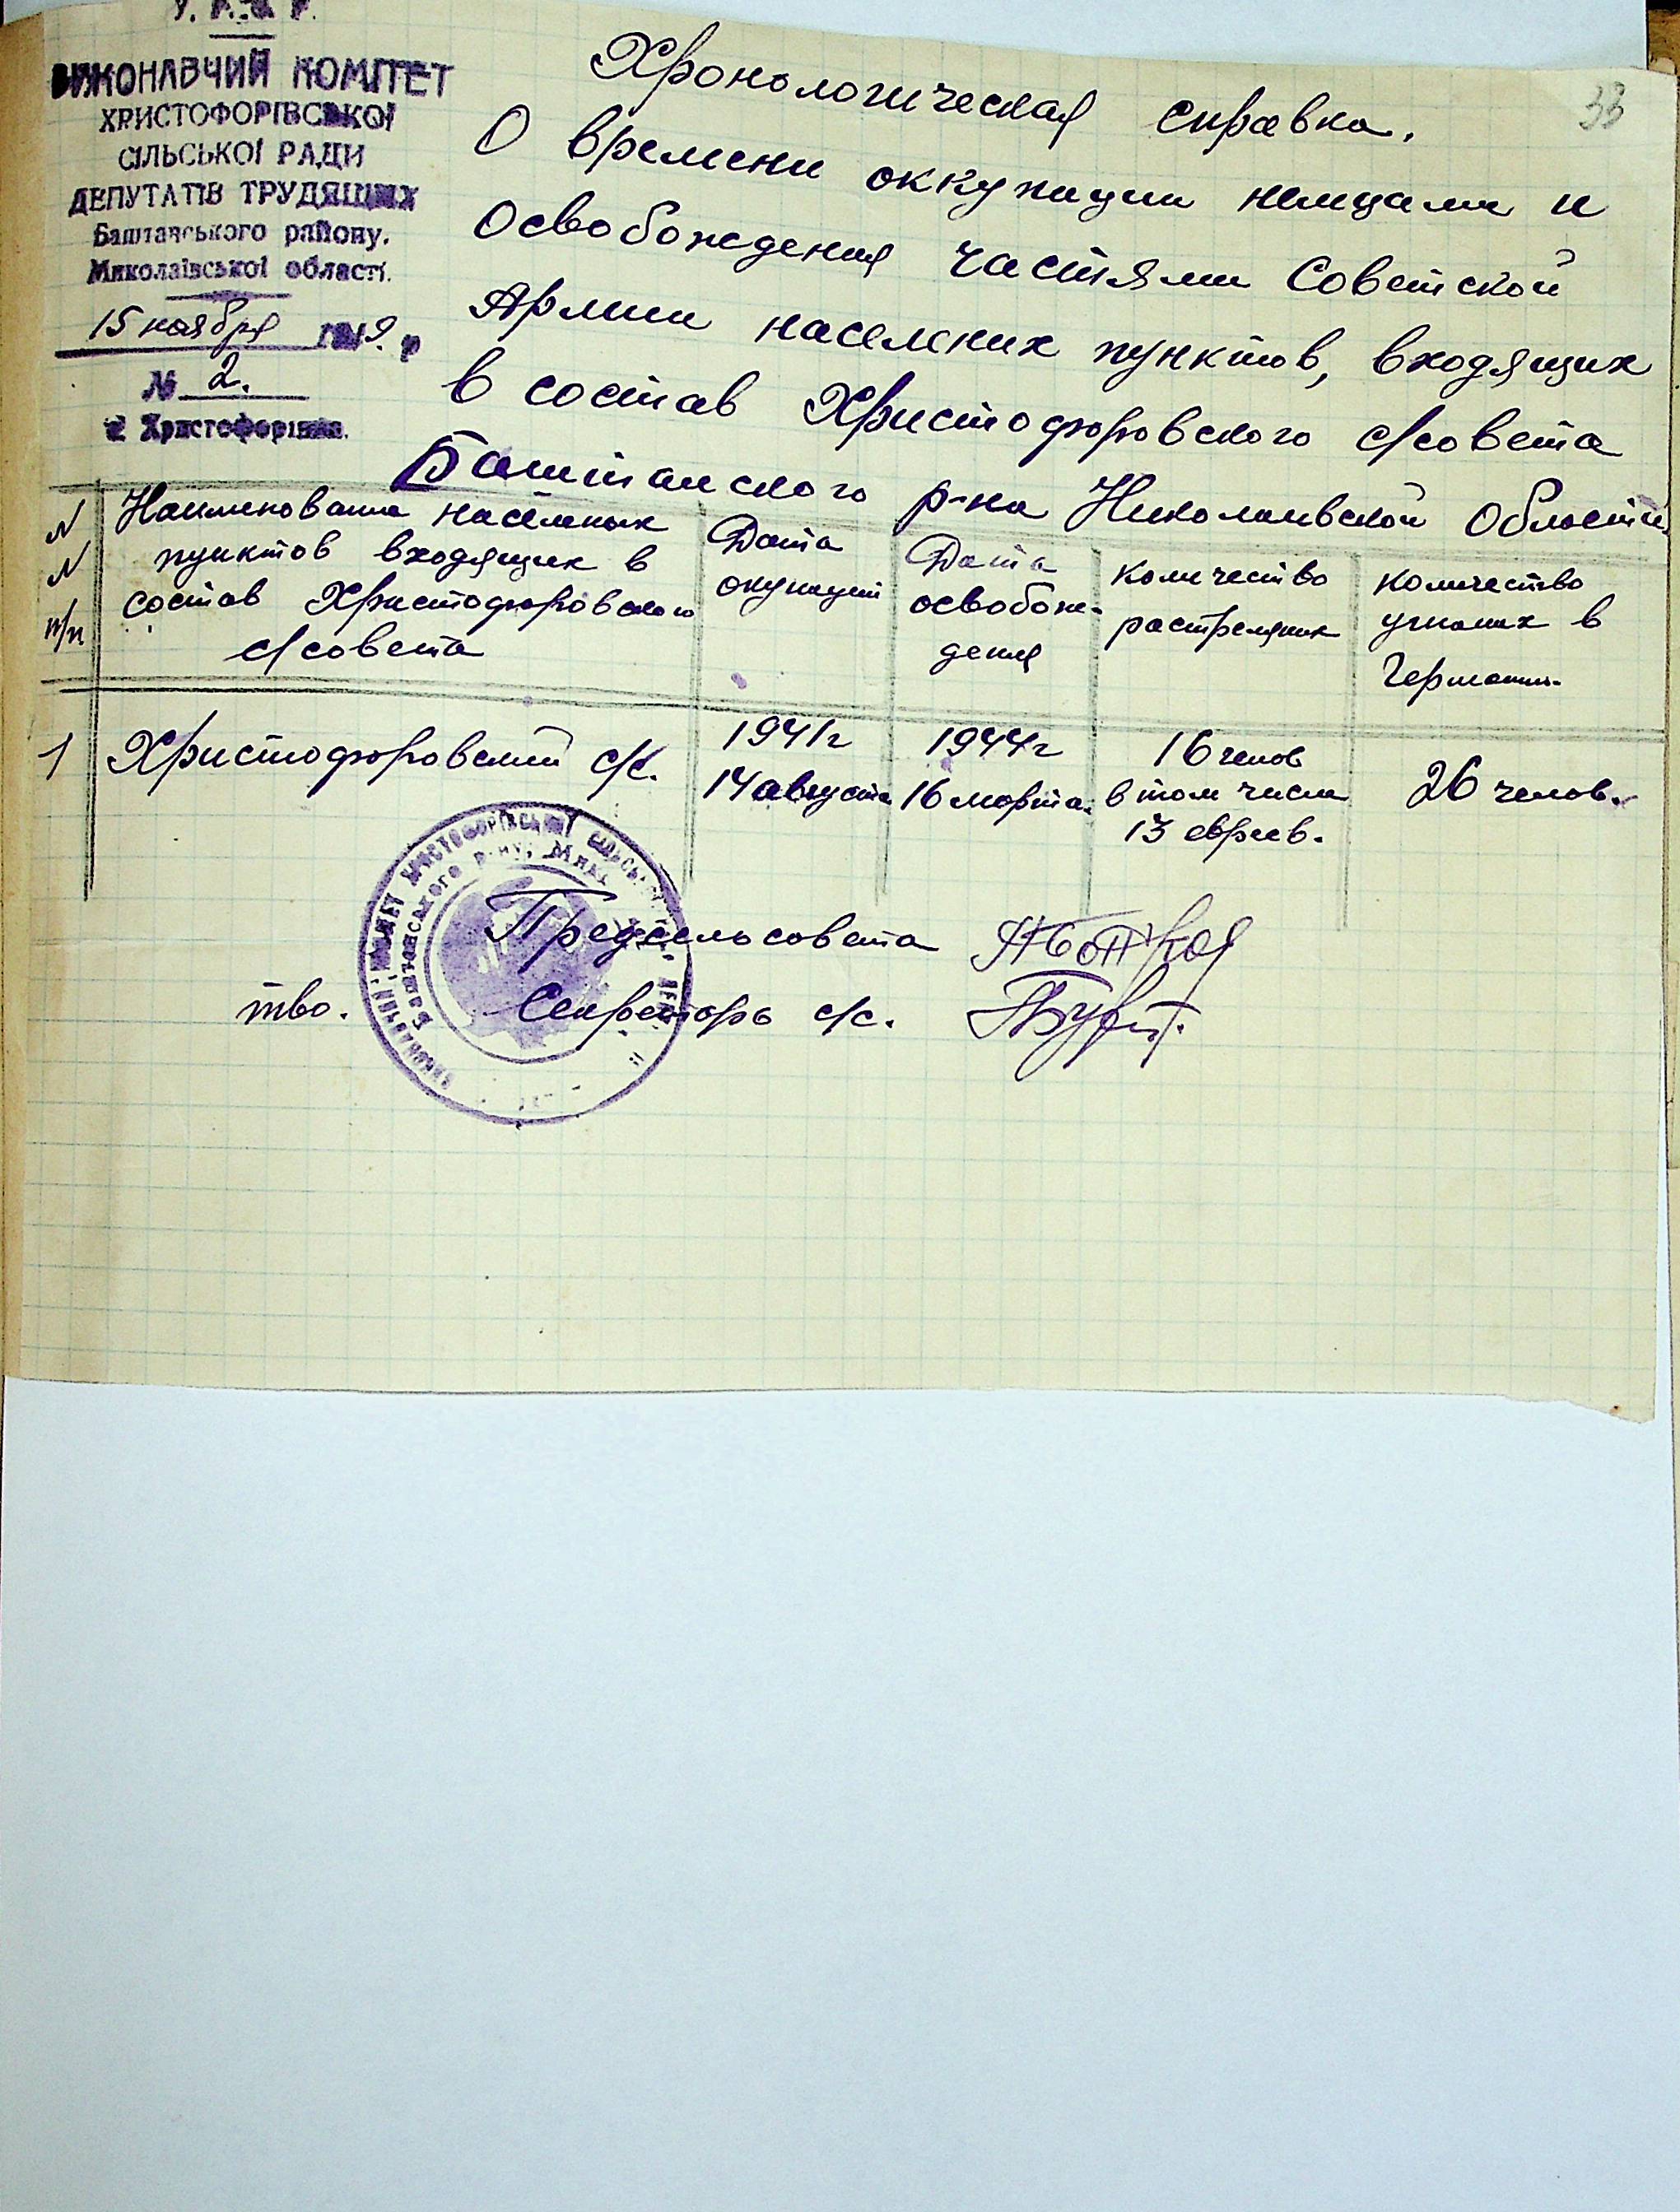 У. Р. С. Р.
ВИКОНАВЧИЙ КОМІТЕТ
ХРИСТОФОРІВСЬКОІ
СІЛЬСЬКОІ РАДИ
ДЕПУТАТІВ ТРУДЯЩИХ
Баштанського району.
Миколаївської області.
15 ноября 1949 р
№ 2.
с Христофорівка.
33
Хронологическая справка.
О времени оккупации немцами и
Освобождения частями Советской
Армии населених пунктов, входящих
в состав Христофоровского с/совета
Баштанского р-на Николаевской Области
N N п/п
Наименование населеных
пунктов входящих в
состав Христофоровского
с/совета
Дата
окупации
Дата
освобож-
дения
количество
растреляних
количество
угнаних в
Германию.
1 Христофоровский с/с.
1941г
14 августа
1944г
16 марта.
16 челов
в том числе
13 евреев.
26 челов.
Предсельсовета
тво. Секретарь с/с.
ВИКОНАВЧИЙ КОМІТЕТ ХРИСТОФОРІВСЬКОЇ СІЛЬСЬК
Баштанського р-ну, Мик